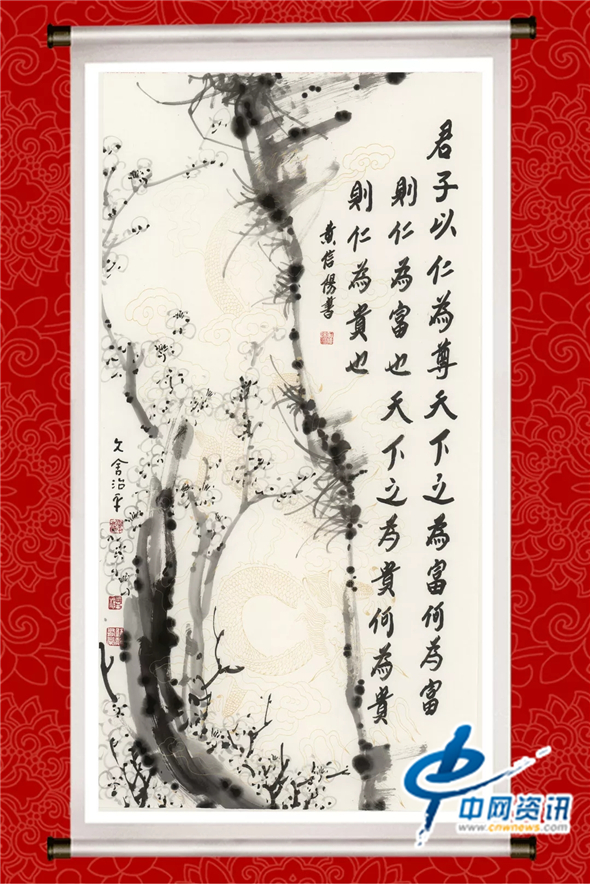 君子以仁為尊天下之為富何為富
則仁為富也天下之為貴何為貴
則仁為貴也
黄信陽書
久舍治平
中网资讯
www.cnwnews.com